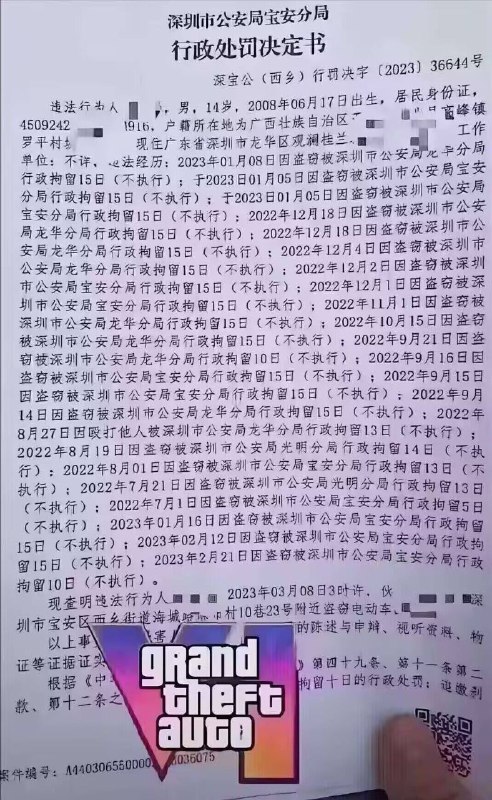 深圳市公安局宝安分局
行政处罚决定书
深宝公（西乡）行罚决字〔2023〕36644号
违法行为人 ，男，14岁，2008年06月17日出生，居民身份证，
4509242 3916，户籍所在地为广西壮族自治区 高峰镇
罗平村 现住广东省深圳市龙华区观澜桂兰 工作
单位：不详，违法经历：2023年01月08日因盗窃被深圳市公安局龙华分局
行政拘留15日（不执行）；于2023日01月05日因盗窃被深圳市公安局宝安
分局行政拘留15日（不执行）；于2023日01月05日因盗窃被深圳市公安局
宝安分局行政拘留15日（不执行）；2022年12月18日因盗窃被深圳市公安
局龙华分局行政拘留15日（不执行）；2022年12月18日因盗窃被深圳市公
安局龙华分局行政拘留15日（不执行）；2022年12月4日因盗窃被深圳市
公安局龙华分局行政拘留15日（不执行）；2022年12月2日因盗窃被深圳
市公安局宝安分局行政拘留15日（不执行）；2022年12月1日因盗窃被深
圳市公安局宝安分局行政拘留15日（不执行）；2022年11月1日因盗窃被
深圳市公安局龙华分局行政拘留15日（不执行）；2022年10月15日因盗窃
被深圳市公安局龙华分局行政拘留15日（不执行）；2022年9月21日因盗
窃被深圳市公安局龙华分局行政拘留10日（不执行）；2022年9月16日因
盗窃被深圳市公安局宝安分局行政拘留15日（不执行）；2022年9月15日
因盗窃被深圳市公安局宝安分局行政拘留15日（不执行）；2022年9月
14日因盗窃被深圳市公安局龙华分局行政拘留15日（不执行）；2022年
8月27日因殴打他人被深圳市公安局龙华分局行政拘留13日（不执行）；
2022年8月19日因盗窃被深圳市公安局光明分局行政拘留14日（不执
行）；2022年8月01日因盗窃被深圳市公安局宝安分局行政拘留13日（不
执行）；2022年7月21日因盗窃被深圳市公安局光明分局行政拘留13日
（不执行）；2022年7月1日因盗窃被深圳市公安局宝安分局行政拘留5日
（不执行）；2023年01月16日因盗窃被深圳市公安局宝安分局行政拘留
15日（不执行）；2023年02月12日因盗窃被深圳市公安局宝安分局行政
拘留15日（不执行）；2023年2月21日因盗窃被深圳市公安局宝安分局行政
拘留10日（不执行）。
现查明违法行为人 2023年03月08日3时许，伙 深
圳市宝安区西乡街道海城 村10巷23号附近盗窃电动车。
以上事 害 的陈述与申辩、视听资料、物
证等证据证实
根据《中 》第四十九条、第十一条第二
款、第十二条之 拘留十日的行政处罚；追缴
grand
theft
auto
VI
案件编号：A4403065600002 0036075